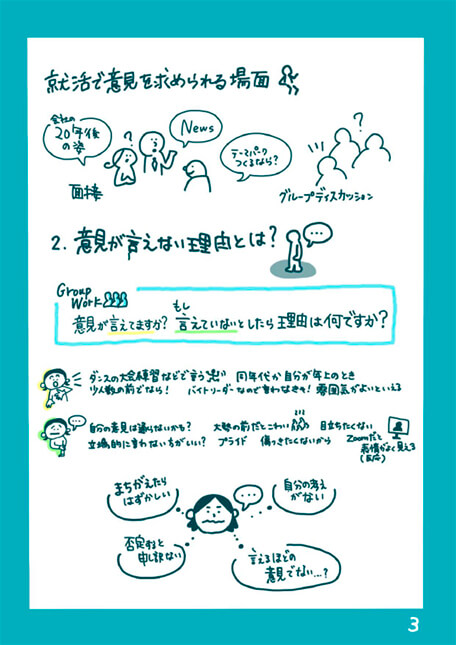 就活で意見を求められる場面
会社の
20年後
の姿
?
News
テーマパーク
つくるなら?
?
面接
グループディスカッション
2. 意見が言えない理由とは?
Group
Work
意見が言えてますか? もし
言えていないとしたら理由は何ですか?
ダンスの大会練習などで言う 同年代か自分が年上のとき
少人数の前でなら! バイトリーダーなので言わなきゃ! 雰囲気がよいといえる
自分の意見は通らないかも? 大勢の前だとこわい 目立ちたくない
立場的に言わない方がいい? プライド 傷つきたくないから Zoomだと
表情がよく見える
(反応)
まちがえたら
はずかしい
自分の考え
がない
否定すると
申し訳ない
言えるほどの
意見でない…?
3